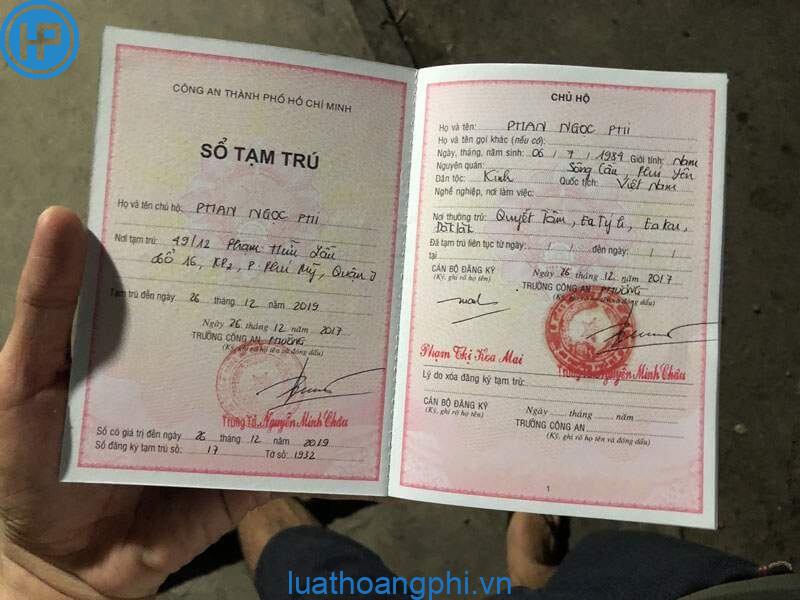 HP
CÔNG AN THÀNH PHỐ HỒ CHÍ MINH
SỔ TẠM TRÚ
Họ và tên chủ hộ: PHAN NGỌC PHI
Nơi tạm trú: 49/12 Phạm Hữu Lầu
tổ 16, KP2, P. Phú Mỹ, Quận 7
Tạm trú đến ngày 26 tháng 12 năm 2019
Ngày 26 tháng 12 năm 2017
TRƯỞNG CÔNG AN PHƯỜNG
(Ký, ghi rõ họ tên và đóng dấu)
Trung Tá Nguyễn Minh Châu
Sổ có giá trị đến ngày 26 tháng 12 năm 2019
Sổ đăng ký tạm trú số: 17 Tờ số: 1932
CHỦ HỘ
Họ và tên: PHAN NGOC PHI
Họ và tên gọi khác (nếu có):
Ngày, tháng, năm sinh: 06 / 7 / 1984 Giới tính: Nam
Nguyên quán: Sông Cầu, Phú Yên
Dân tộc: Kinh Quốc tịch: Việt Nam
Nghề nghiệp, nơi làm việc:
Nơi thường trú: Quyết Tâm, Ea Týh, Ea Kar,
Đăk Lăk
Đã tạm trú liên tục từ ngày: / / đến ngày: / /
tại
Ngày 26 tháng 12 năm 2017
CÁN BỘ ĐĂNG KÝ TRƯỞNG CÔNG AN PHƯỜNG
(Ký, ghi rõ họ tên) (Ký, ghi rõ họ tên và đóng dấu)
Phạm Thị Hoa Mai Trung Tá Nguyễn Minh Châu
Lý do xóa đăng ký tạm trú:
Ngày ...... tháng ...... năm ......
CÁN BỘ ĐĂNG KÝ TRƯỞNG CÔNG AN
(Ký, ghi rõ họ tên) (Ký, ghi rõ họ tên và đóng dấu)
1
luathoangphi.vn